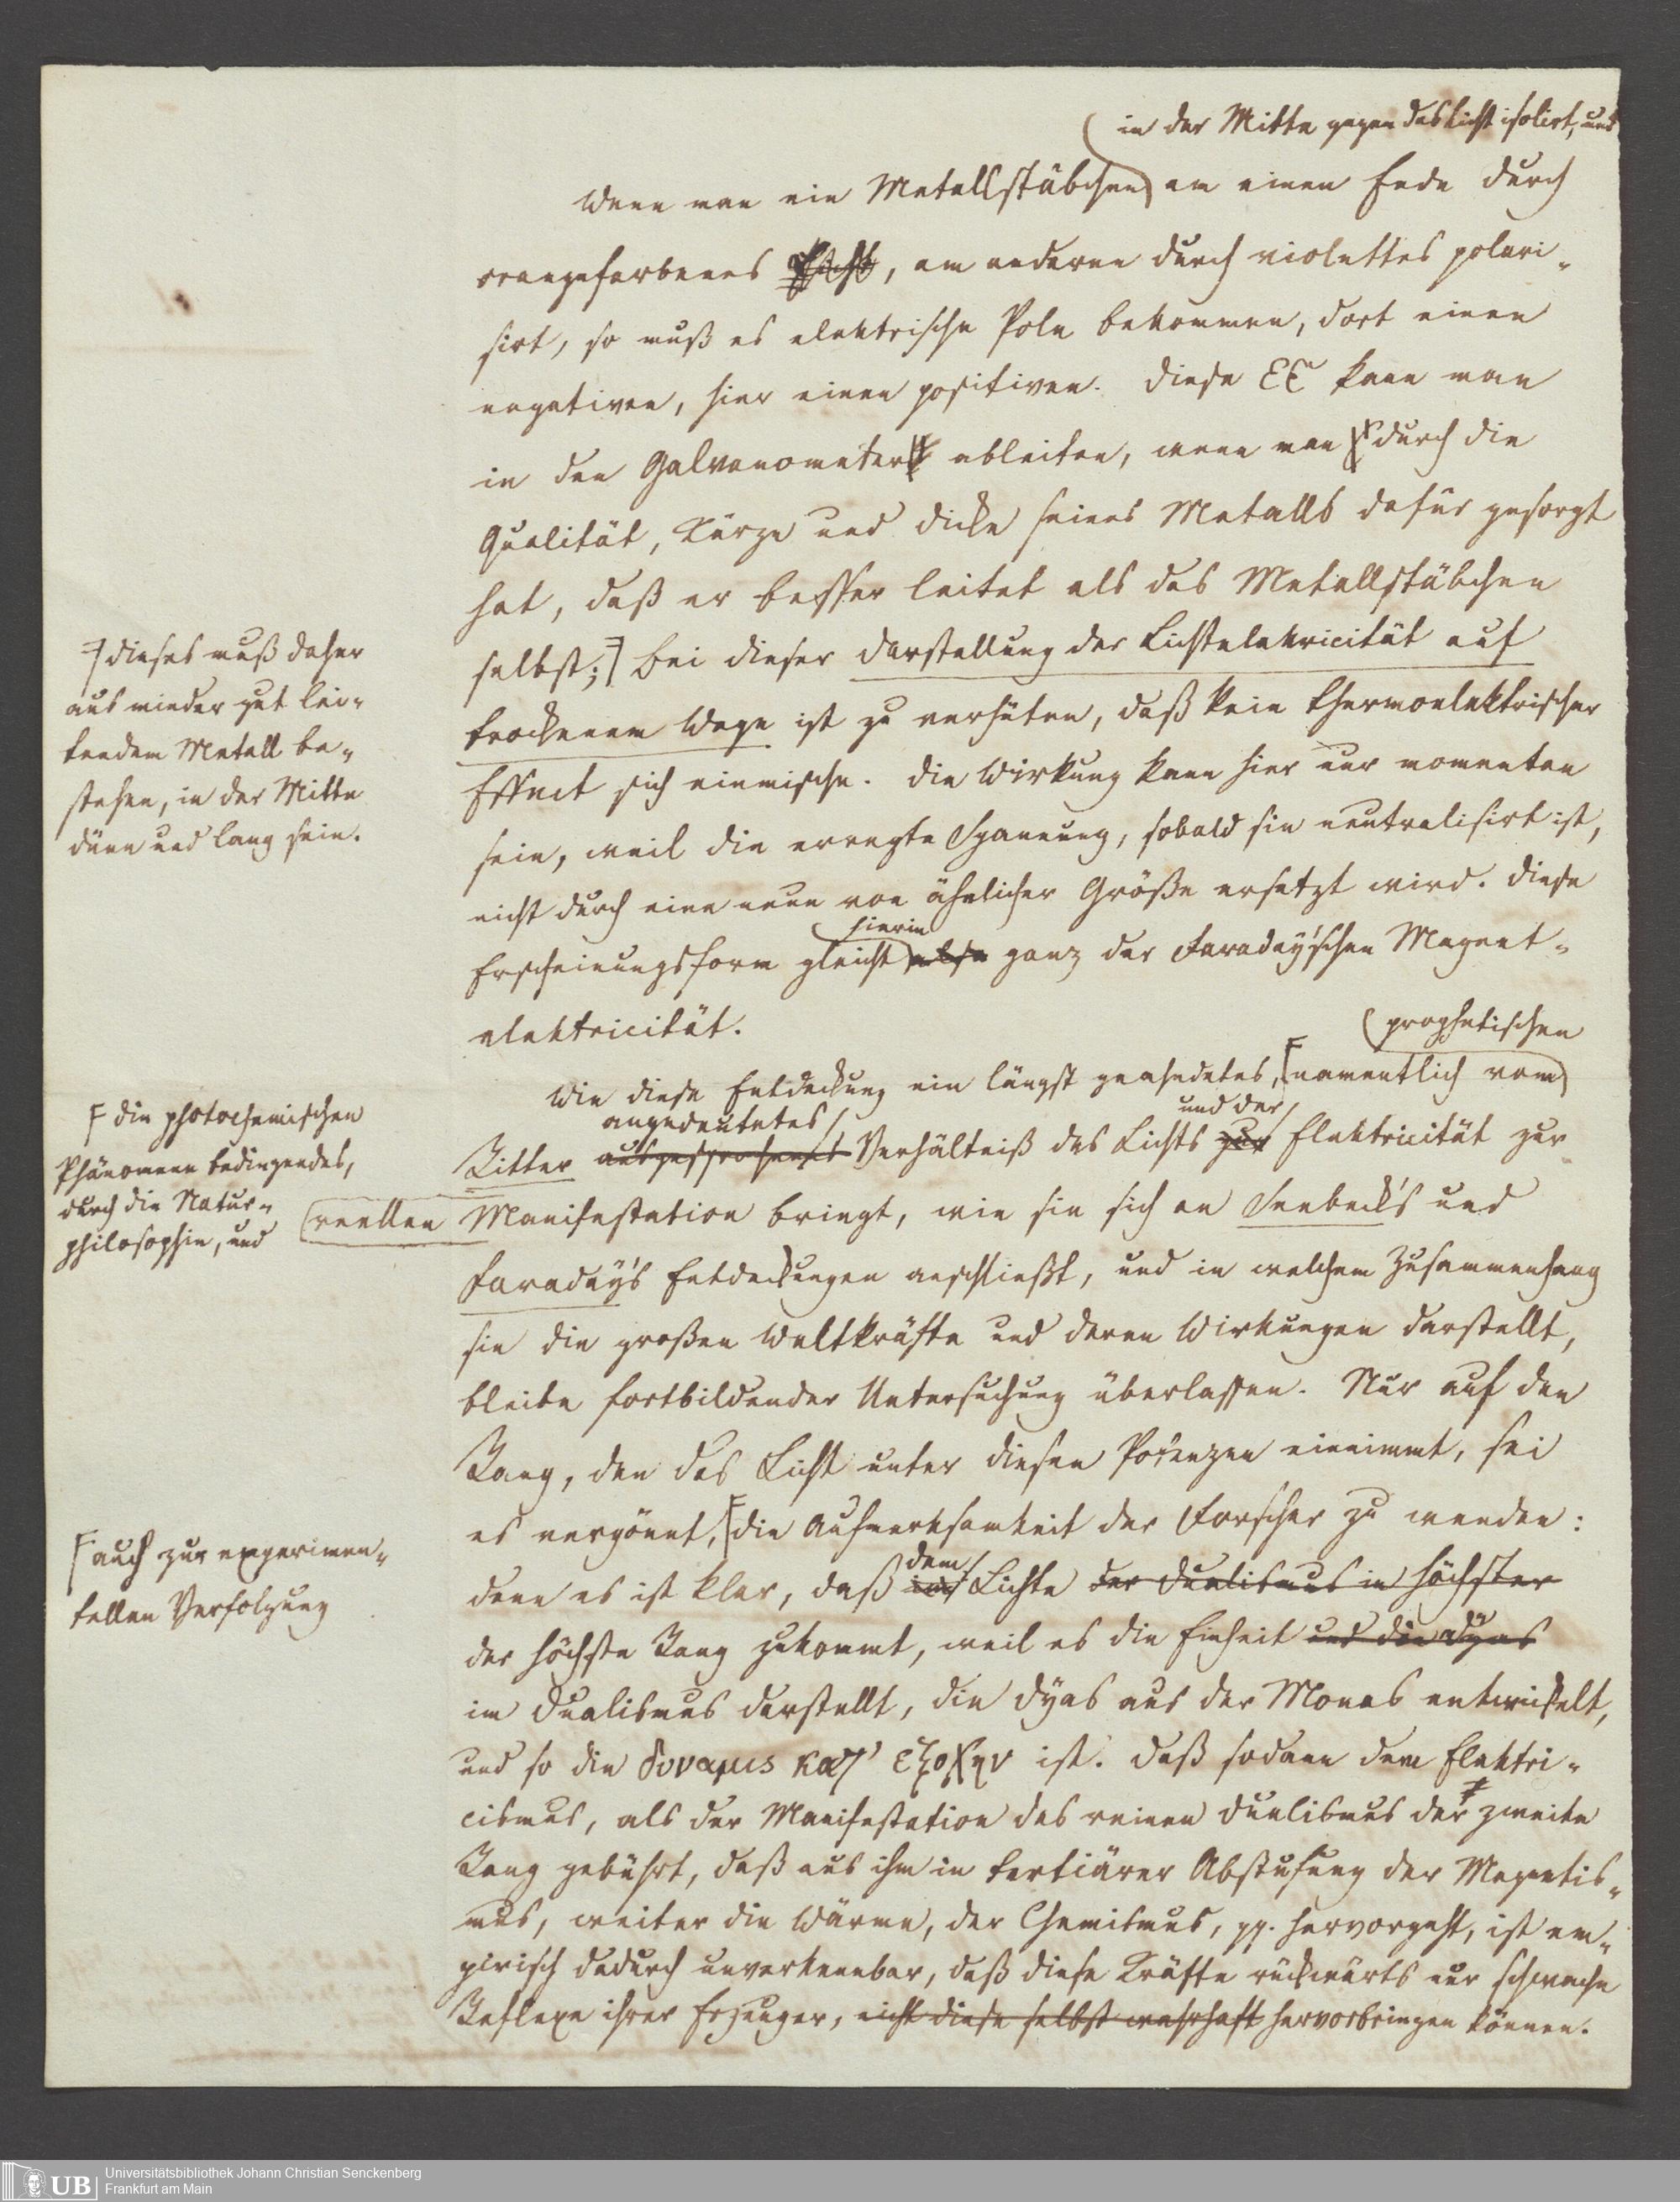 in der Mitte gegen das Licht isolirt, und
Wenn man ein Metallstäbchen am einen Ende durch
orangefarbenes Licht, am anderen durch violettes polari-
sirt, so muß es elektrische Pole bekommen, dort einen
negativen, hier einen positiven. Diese EE kann man
in den Galvanometer ableiten, wenn man durch die
Qualität, Kürze und Dicke seines Metalls dafür gesorgt
hat, daß er besser leitet als das Metallstäbchen
selbst; Bei dieser Darstellung der Lichtelektricität auf
dieses muß daher
aus minder gut lei-
tendem Metall be-
stehen, in der Mitte
dünn und lang sein.
trockenem Wege ist zu verhüten, daß kein thermoelektrischer
Effect sich einmische. Die Wirkung kann hier nur momentan
sein, weil die erregte Spannung, sobald sie neutralisirt ist,
nicht durch eine neue von ähnlicher Größe ersetzt wird. Diese
hierin
Erscheinungsform gleicht also ganz der Faraday'schen Magnet-
elektricität.
prophetischen
Wie diese Entdeckung ein längst geahndetes, namentlich vom
die photochemischen
Phänomene bedingendes,
durch die Natur-
philosophie, und
angedeutetes und der
Ritter ausgesprochenes Verhältniß des Lichts zur Elektricität zur
reellen Manifestation bringt, wie sie sich an Seebeck's und
Faraday's Entdeckungen anschließt, und in welchem Zusammenhang
sie die großen Weltkräfte und deren Wirkungen darstellt,
bleibe fortbildender Untersuchung überlassen. Nur auf den
Rang, den das Licht unter diesen Potenzen einnimmt, sei
es vergönnt, die Aufmerksamkeit der Forscher zu wenden:
auch zur experimen-
tellen Verfolgung
dem
denn es ist klar, daß im Lichte der Dualismus in höchster
der höchste Rang zukommt, weil es die Einheit und die Dyas
im Dualismus darstellt, die Dyas aus der Monas entwickelt,
und so die δυναμις κατ' εξοχην ist. Daß sodann dem Elektri-
cismus, als der Manifestation des reinen Dualismus der zweite
Rang gebührt, daß aus ihm in tertiärer Abstufung der Magnetis-
mus, weiter die Wärme, der Chemismus, pp. hervorgeht, ist em-
pirisch dadurch unverkennbar, daß diese Kräfte rückwärts nur schwache
Reflexe ihrer Erzeuger, nicht diese selbst wahrhaft hervorbringen können.
UB
Universitätsbibliothek Johann Christian Senckenberg
Frankfurt am Main